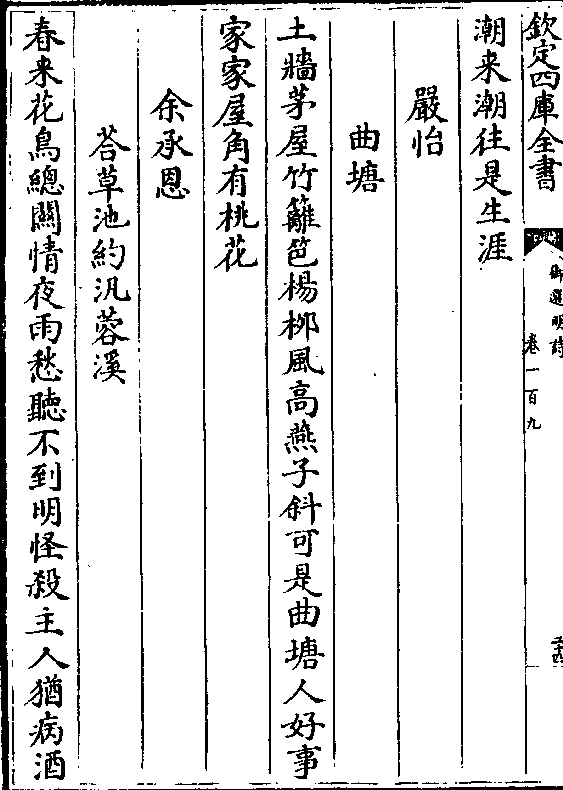 欽定四庫全書
御選明詩
卷一百九
潮来潮往是生涯
嚴怡
曲塘
土牆茅屋竹籬笆楊栁風高燕子斜可是曲塘人好事
家家屋角有桃花
余承恩
荅草池約汎蓉溪
春来花鳥總關情夜雨愁聽不到明怪殺主人猶病酒